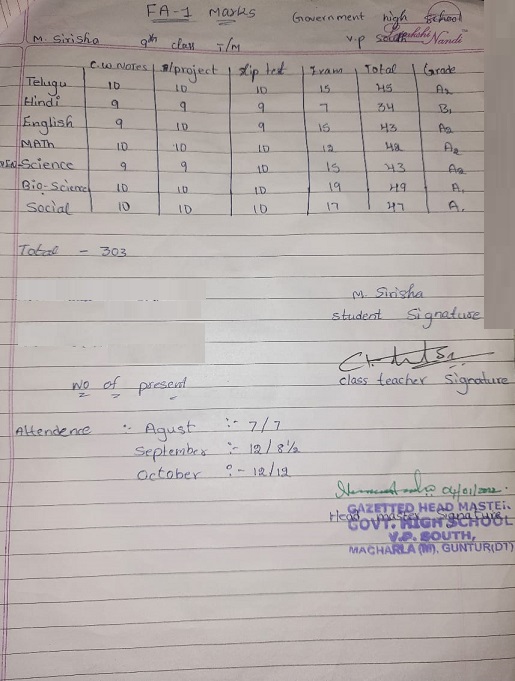 FA-1 Marks Government high School
M. Sirisha 9th class T/M V.P South Nandi
C.W Notes P/project Slip test Exam Total Grade
Telugu 10 10 10 15 45 A2
Hindi 9 9 9 7 34 B1
English 9 10 9 15 43 A2
MATh 10 10 10 12 42 A2
Science 9 9 10 15 43 A2
Bio-Science 10 10 10 19 49 A1
Social 10 10 10 17 47 A1
Total - 303
M. Sirisha
student Signature
class teacher Signature
NO of present
Attendence :- Agust :- 7/7
September :- 12/8½
October :- 12/12
GAZETTED HEAD MASTER
Head master Signature
GOVT. HIGH SCHOOL
V.P. SOUTH,
MACHARLA (M), GUNTUR(DT)